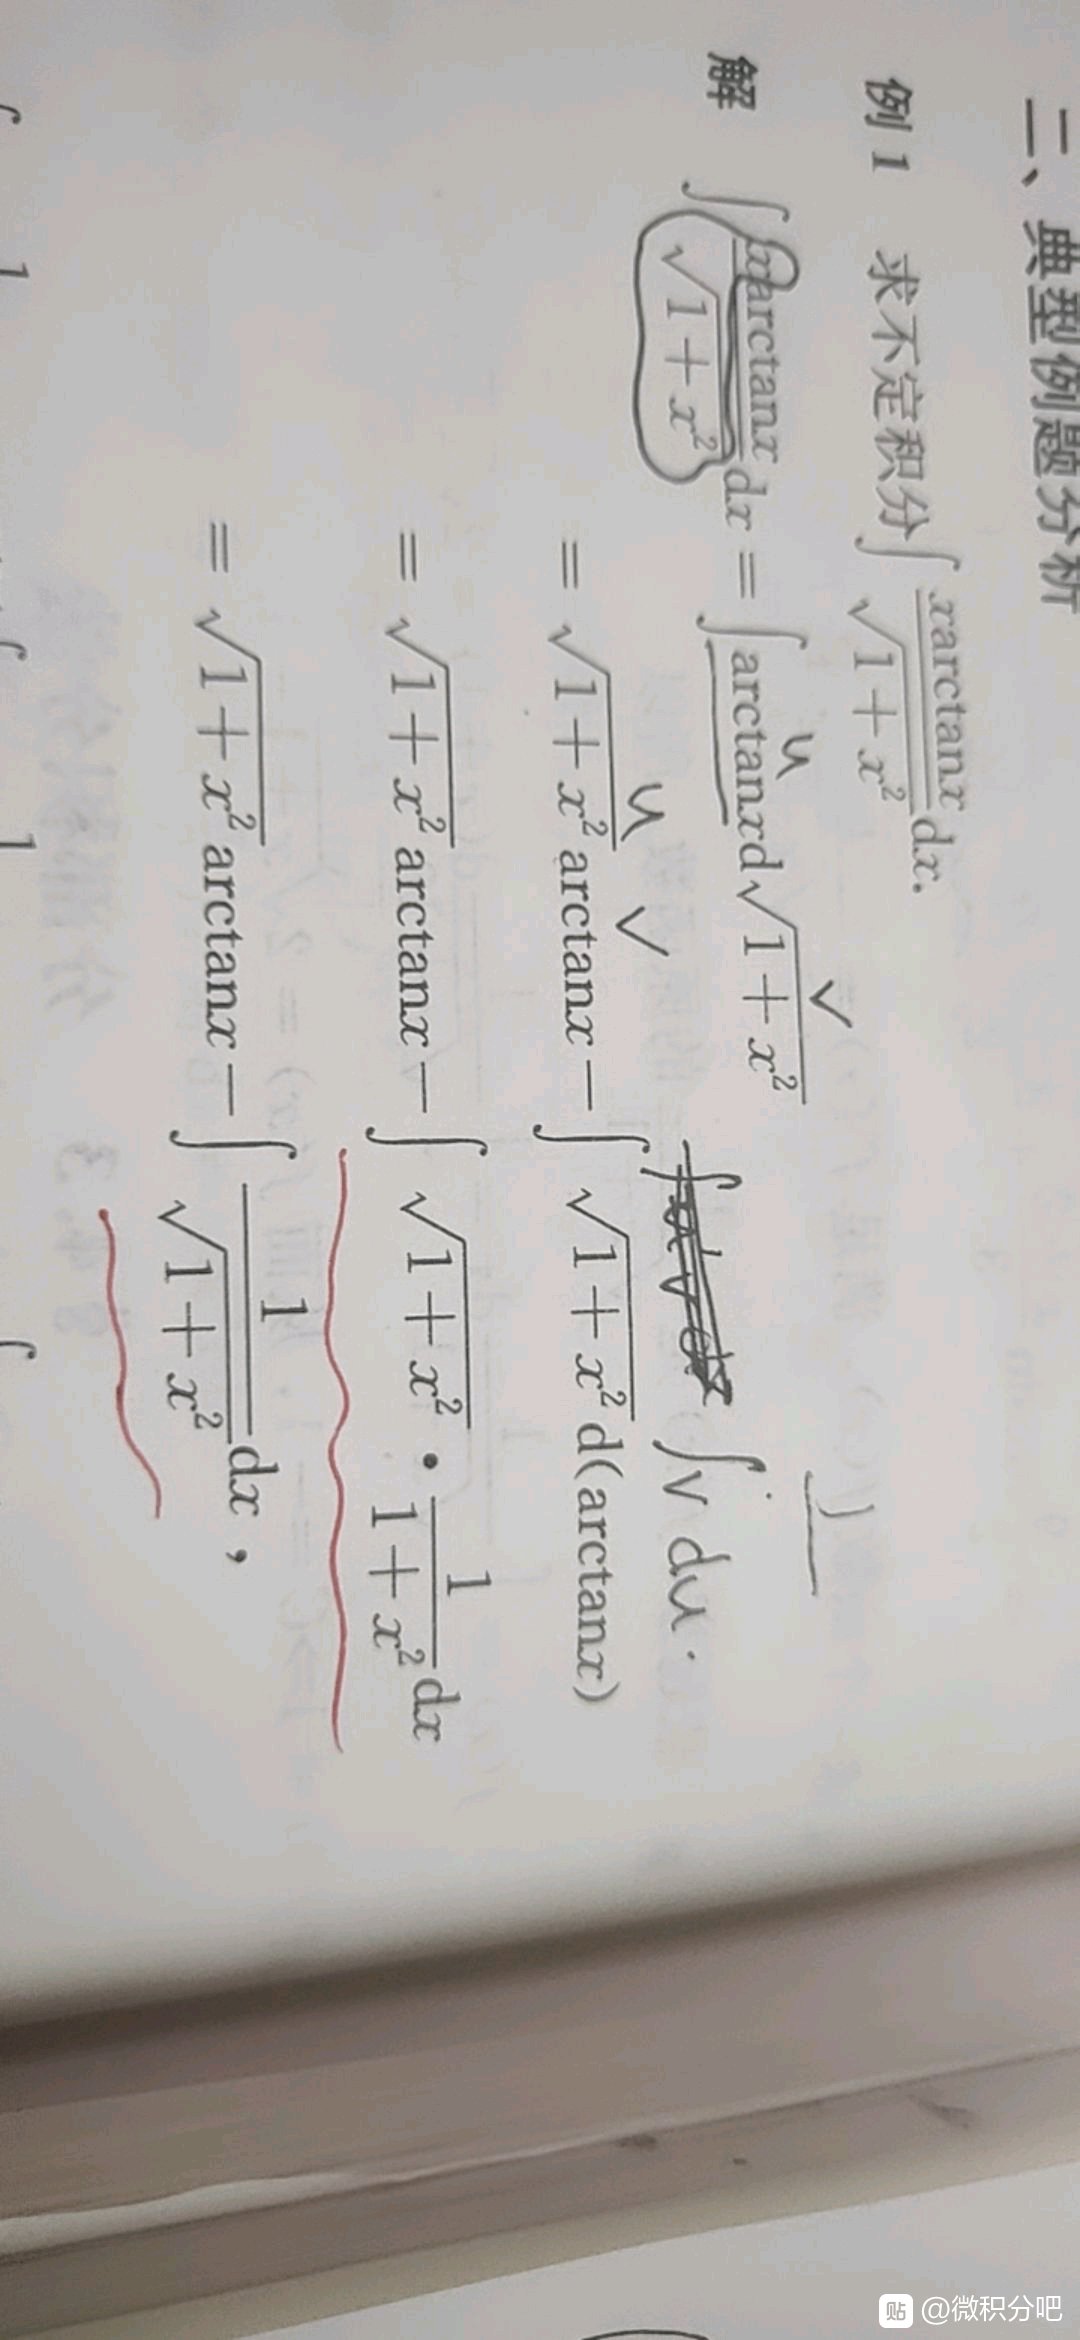 二、典型例题分析
例1 求不定积分∫ xarctanx/√(1+x²) dx.
解 ∫ xarctanx/√(1+x²) dx = ∫arctanxd√(1+x²)
u v
∫v du.
= √(1+x²) arctanx − ∫ √(1+x²) d(arctanx)
u v
= √(1+x²) arctanx − ∫ √(1+x²) · 1/(1+x²) dx
= √(1+x²) arctanx − ∫ 1/√(1+x²) dx，
贴 @微积分吧